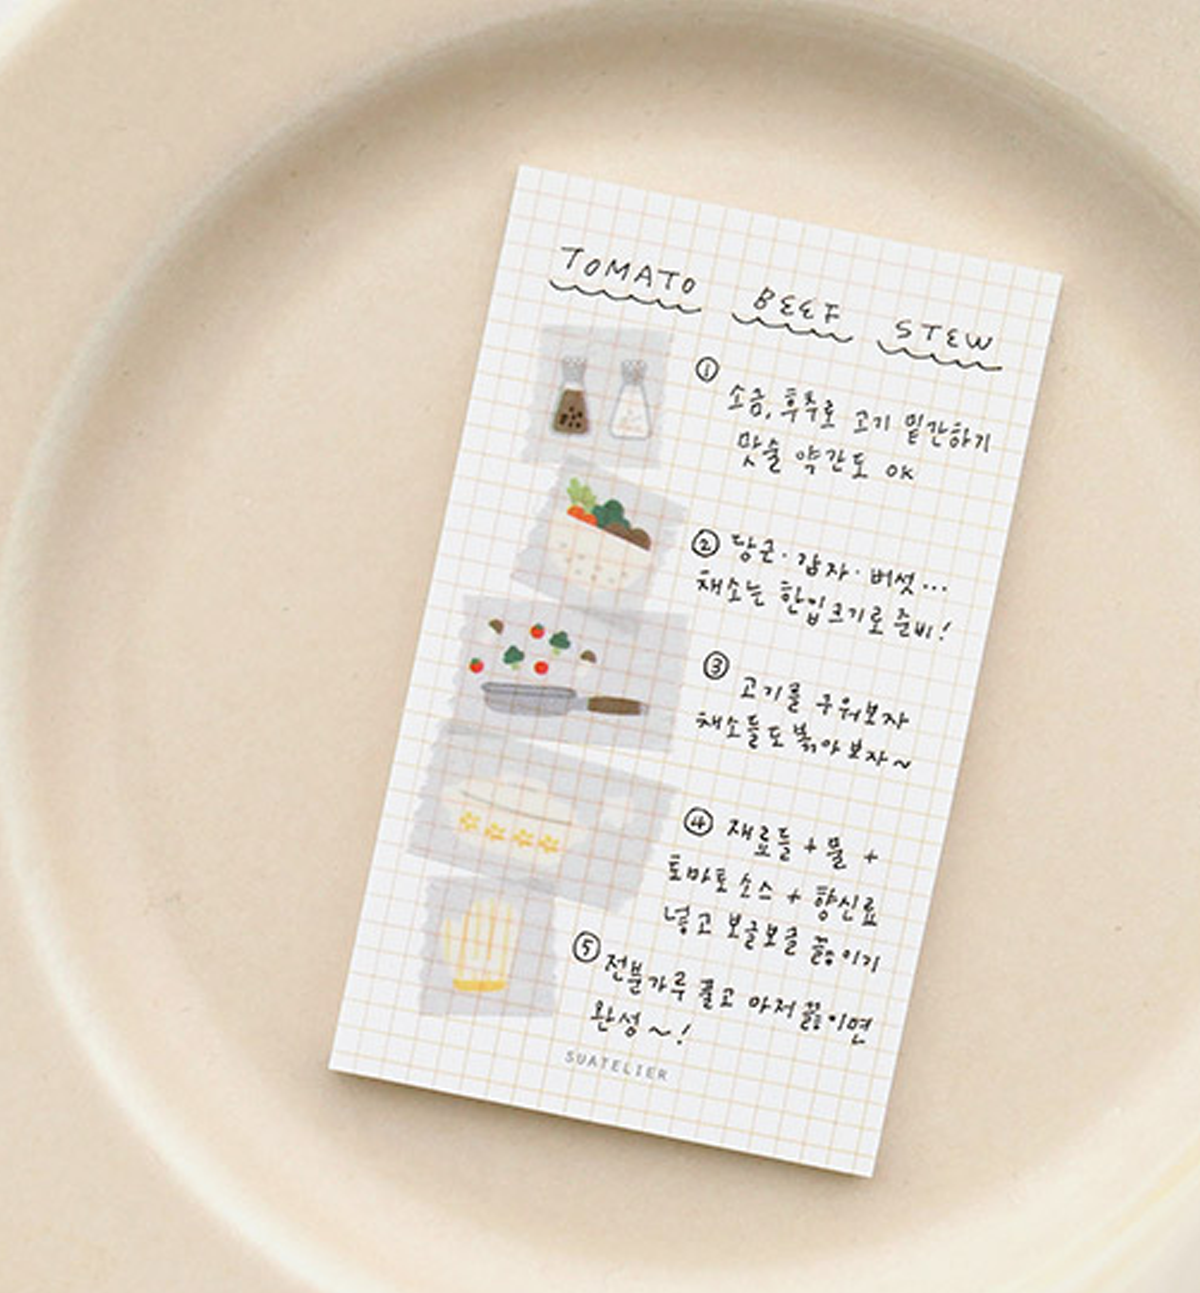 TOMATO BEEF STEW
①
소금, 후추로 고기 밑간하기
맛술 약간도 OK
② 당근·감자·버섯...
채소는 한입크기로 준비!
③
고기를 구워보자
채소들도 볶아보자~
④ 재료들 + 물 +
토마토 소스 + 향신료
넣고 보글보글 끓이기
⑤ 전분가루 풀고 마저 끓이면
완성~!
SUATELIER